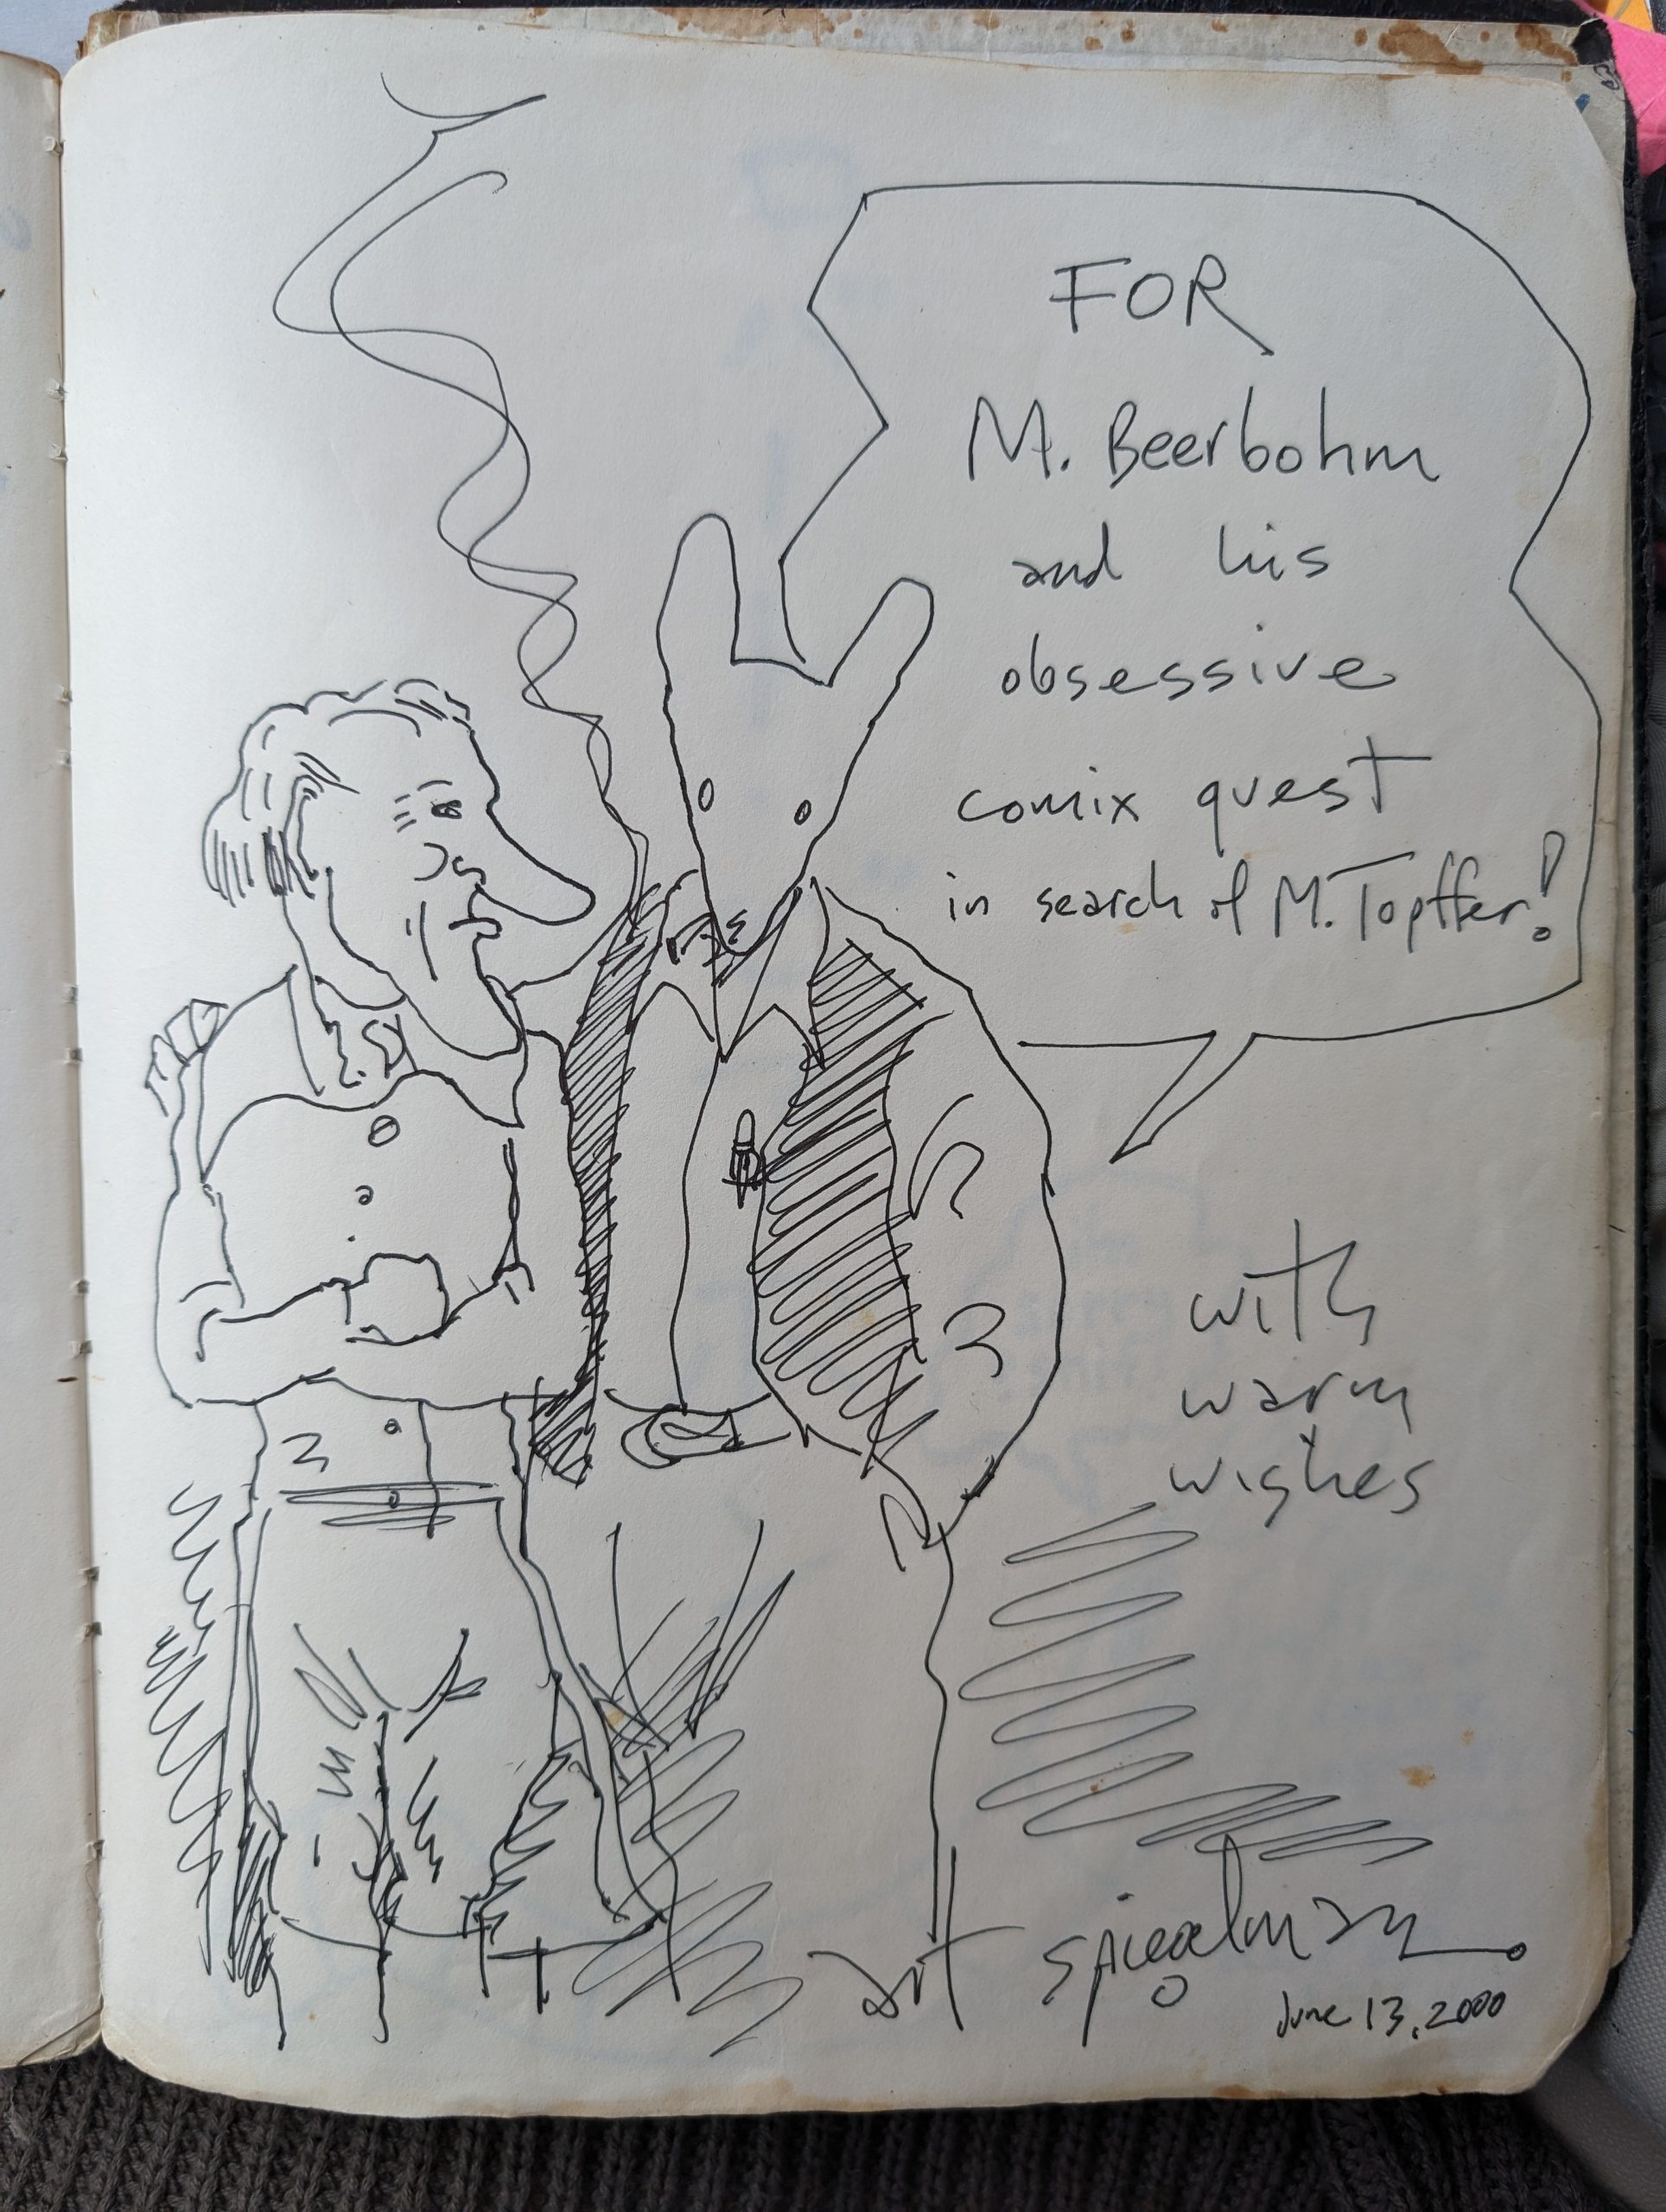 FOR
M. Beerbohm
and his
obsessive
comix quest
in search of M. Topffer!
with
warm
wishes
art spiegelman
June 13, 2000